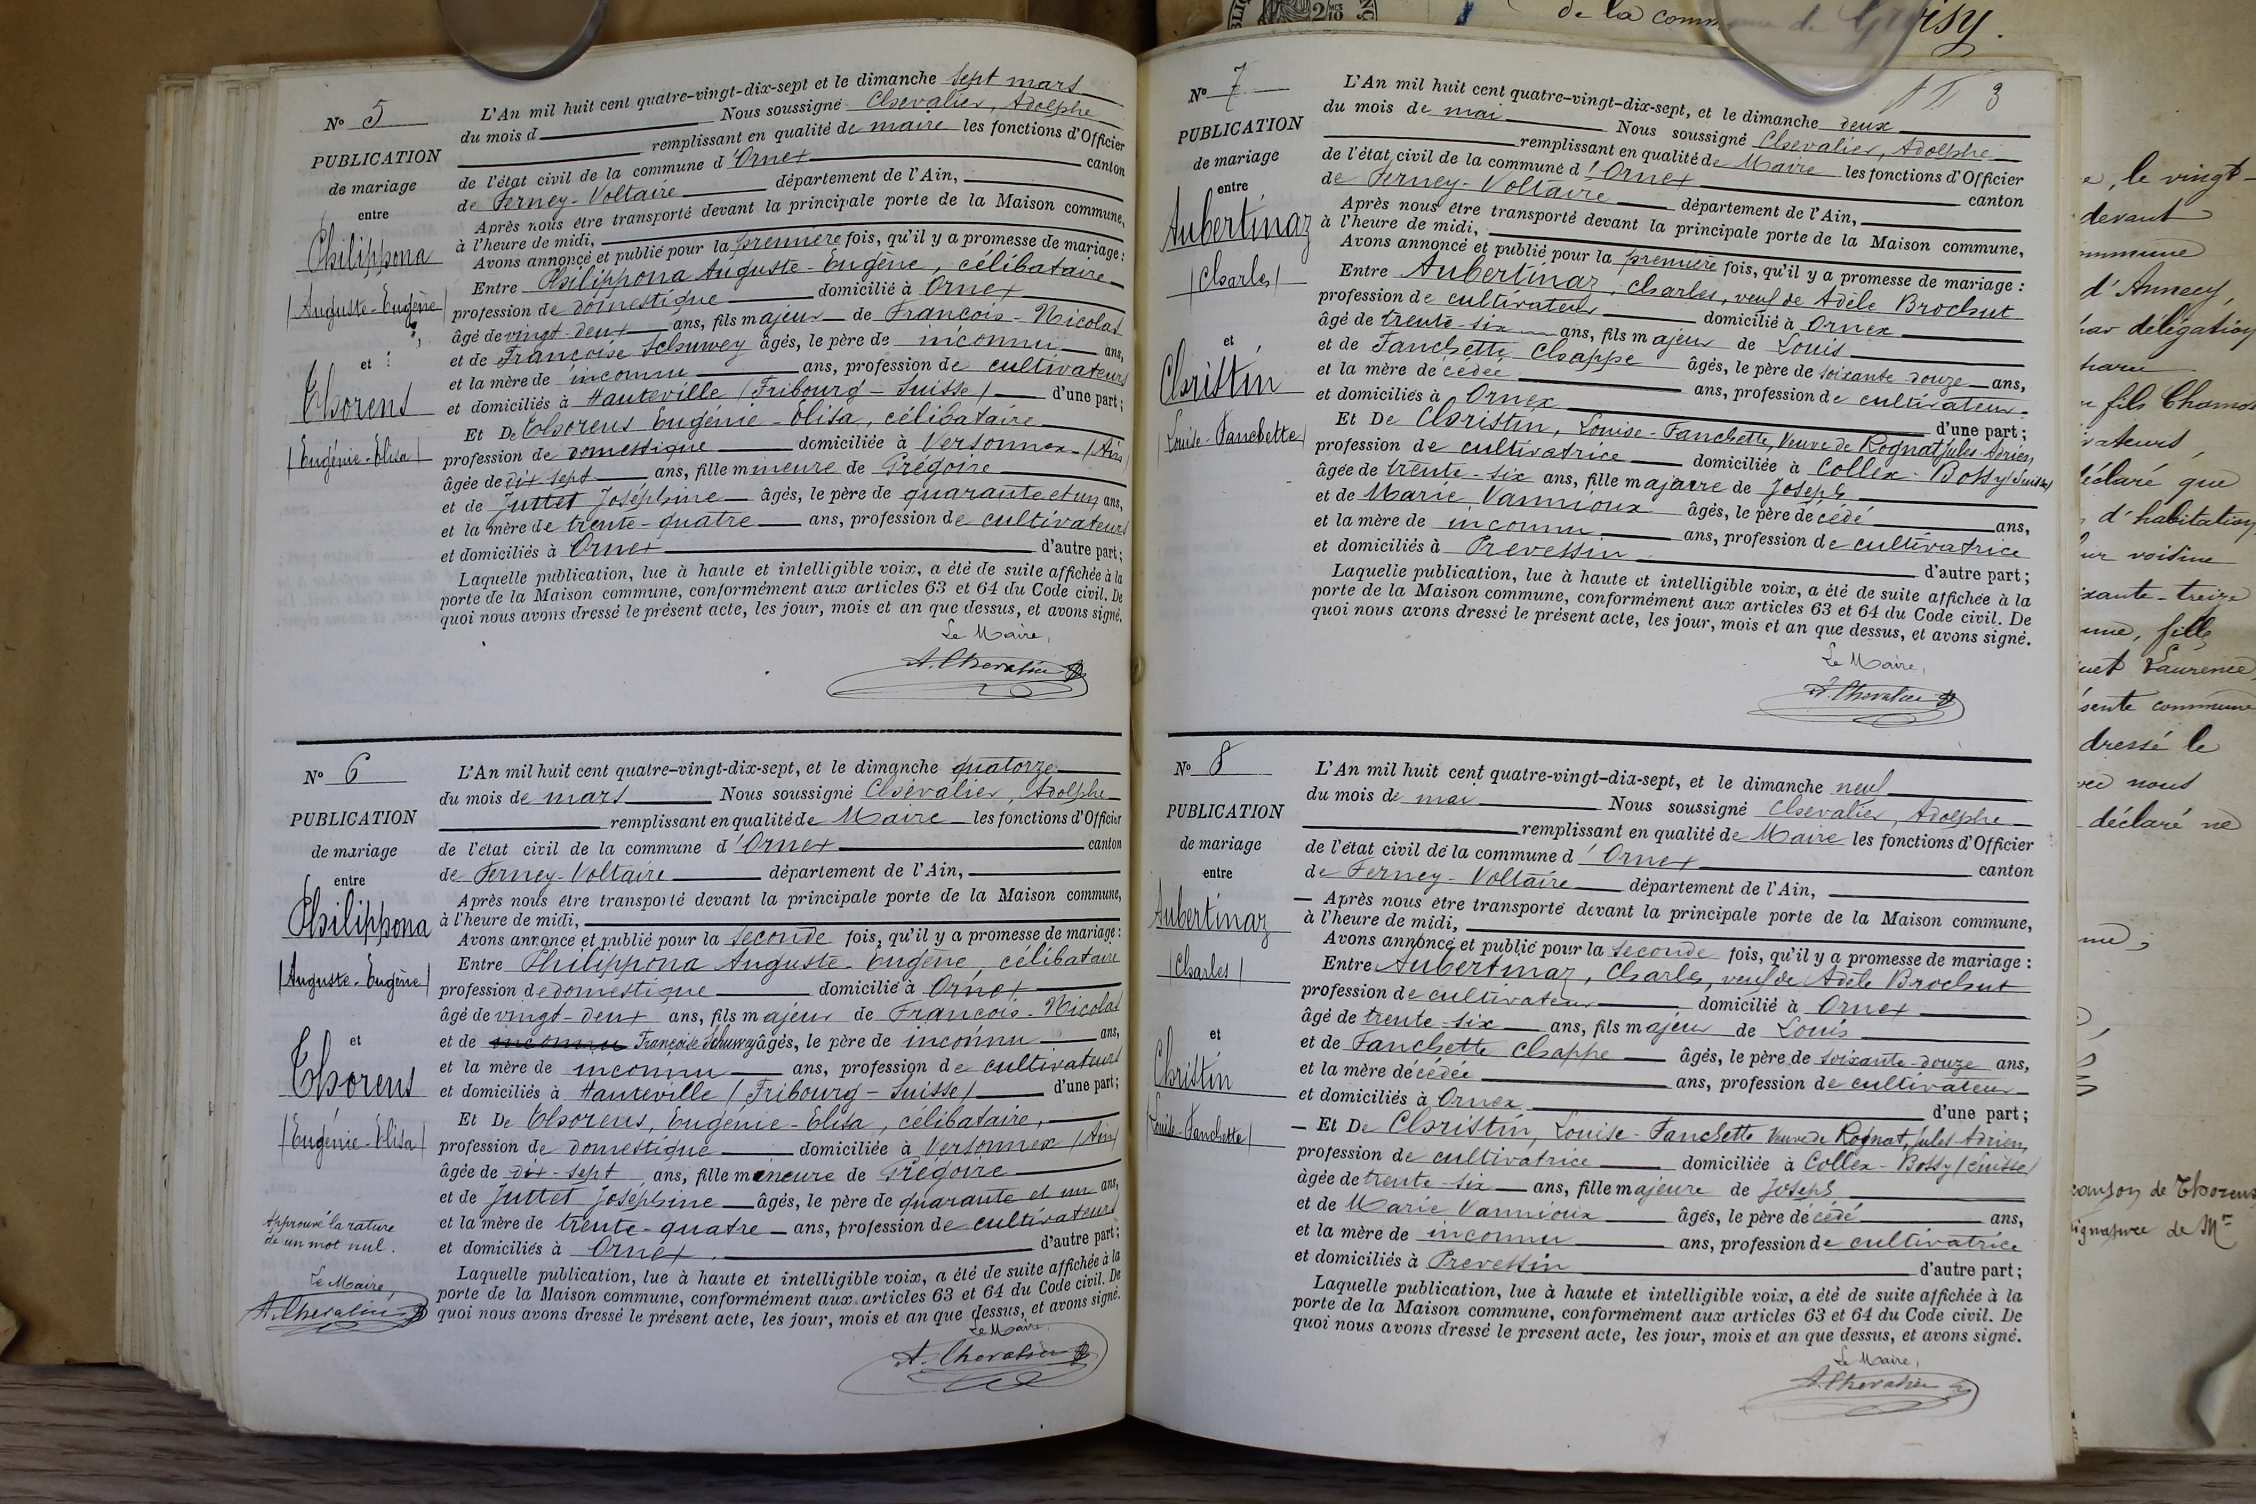 de la commune de Groisy.
N° 5
PUBLICATION
de mariage
entre
Philippona
(Auguste-Eugène)
et
Thorens
(Eugénie-Elisa)
L'An mil huit cent quatre-vingt-dix-sept et le dimanche sept mars
du mois d Nous soussigné Chevalier, Adolphe
remplissant en qualité de maire les fonctions d'Officier
de l'état civil de la commune d'Ornex canton
de Ferney-Voltaire département de l'Ain,
Après nous être transporté devant la principale porte de la Maison commune,
à l'heure de midi,
Avons annoncé et publié pour la première fois, qu'il y a promesse de mariage :
Entre Philippona Auguste-Eugène, célibataire
profession de domestique domicilié à Ornex
âgé de vingt-deux ans, fils majeur de François-Nicolas
et de Françoise Schuwey âgés, le père de inconnu ans,
et la mère de inconnu ans, profession de cultivateurs
et domiciliés à Hauteville (Fribourg-Suisse) d'une part ;
Et De Thorens Eugénie-Elisa, célibataire
profession de domestique domiciliée à Versonnex (Ain)
âgée de dix-sept ans, fille mineure de Grégoire
et de Juttet Joséphine âgés, le père de quarante et un ans,
et la mère de trente-quatre ans, profession de cultivateurs
et domiciliés à Ornex d'autre part ;
Laquelle publication, lue à haute et intelligible voix, a été de suite affichée à la
porte de la Maison commune, conformément aux articles 63 et 64 du Code civil. De
quoi nous avons dressé le présent acte, les jour, mois et an que dessus, et avons signé.
Le Maire,
A. Chevalier
N° 6
PUBLICATION
de mariage
entre
Philippona
(Auguste-Eugène)
et
Thorens
(Eugénie-Elisa)
Approuvé la rature
de un mot nul.
Le Maire,
A. Chevalier
L'An mil huit cent quatre-vingt-dix-sept, et le dimanche quatorze
du mois de mars Nous soussigné Chevalier, Adolphe
remplissant en qualité de Maire les fonctions d'Officier
de l'état civil de la commune d'Ornex canton
de Ferney-Voltaire département de l'Ain,
Après nous être transporté devant la principale porte de la Maison commune,
à l'heure de midi,
Avons annoncé et publié pour la seconde fois, qu'il y a promesse de mariage :
Entre Philippona Auguste-Eugène, célibataire
profession de domestique domicilié à Ornex
âgé de vingt-deux ans, fils majeur de François-Nicolas
et de inconnu Françoise Schuwey âgés, le père de inconnu ans,
et la mère de inconnu ans, profession de cultivateurs
et domiciliés à Hauteville (Fribourg-Suisse) d'une part ;
Et De Thorens, Eugénie-Elisa, célibataire,
profession de domestique domiciliée à Versonnex (Ain)
âgée de dix-sept ans, fille mineure de Grégoire
et de Juttet Joséphine âgés, le père de quarante et un ans,
et la mère de trente-quatre ans, profession de cultivateurs
et domiciliés à Ornex. d'autre part ;
Laquelle publication, lue à haute et intelligible voix, a été de suite affichée à la
porte de la Maison commune, conformément aux articles 63 et 64 du Code civil. De
quoi nous avons dressé le présent acte, les jour, mois et an que dessus, et avons signé.
Le Maire,
A. Chevalier
3
N° 7
PUBLICATION
de mariage
entre
Aubertinaz
(Charles)
et
Christin
(Louise-Fanchette)
L'An mil huit cent quatre-vingt-dix-sept, et le dimanche deux
du mois de mai Nous soussigné Chevalier, Adolphe
remplissant en qualité de Maire les fonctions d'Officier
de l'état civil de la commune d'Ornex canton
de Ferney-Voltaire département de l'Ain,
Après nous être transporté devant la principale porte de la Maison commune,
à l'heure de midi,
Avons annoncé et publié pour la première fois, qu'il y a promesse de mariage :
Entre Aubertinaz, Charles, veuf de Adèle Brochut
profession de cultivateur domicilié à Ornex
âgé de trente-six ans, fils majeur de Louis
et de Fanchette Chappe âgés, le père de soixante-douze ans,
et la mère décédée ans, profession de cultivateur
et domiciliés à Ornex d'une part ;
Et De Christin, Louise-Fanchette, Veuve de Rognat Jules-Adrien,
profession de cultivatrice domiciliée à Collex-Bossy (Suisse)
âgée de trente-six ans, fille majeure de Joseph
et de Marie Vannioux âgés, le père décédé ans,
et la mère de inconnu ans, profession de cultivatrice
et domiciliés à Prevessin d'autre part ;
Laquelle publication, lue à haute et intelligible voix, a été de suite affichée à la
porte de la Maison commune, conformément aux articles 63 et 64 du Code civil. De
quoi nous avons dressé le présent acte, les jour, mois et an que dessus, et avons signé.
Le Maire,
A. Chevalier
N° 8
PUBLICATION
de mariage
entre
Aubertinaz
(Charles)
et
Christin
(Louise-Fanchette)
L'An mil huit cent quatre-vingt-dix-sept, et le dimanche neuf
du mois de mai Nous soussigné Chevalier, Adolphe
remplissant en qualité de Maire les fonctions d'Officier
de l'état civil de la commune d'Ornex canton
de Ferney-Voltaire département de l'Ain,
— Après nous être transporté devant la principale porte de la Maison commune,
à l'heure de midi,
Avons annoncé et publié pour la seconde fois, qu'il y a promesse de mariage :
Entre Aubertinaz, Charles, veuf de Adèle Brochut
profession de cultivateur domicilié à Ornex
âgé de trente-six ans, fils majeur de Louis
et de Fanchette Chappe âgés, le père de soixante-douze ans,
et la mère décédée ans, profession de cultivateur
et domiciliés à Ornex d'une part ;
— Et De Christin, Louise-Fanchette Veuve de Rognat, Jules-Adrien,
profession de cultivatrice domiciliée à Collex-Bossy (Suisse)
âgée de trente-six ans, fille majeure de Joseph
et de Marie Vannioux âgés, le père décédé ans,
et la mère de inconnu ans, profession de cultivatrice
et domiciliés à Prevessin d'autre part ;
Laquelle publication, lue à haute et intelligible voix, a été de suite affichée à la
porte de la Maison commune, conformément aux articles 63 et 64 du Code civil. De
quoi nous avons dressé le présent acte, les jour, mois et an que dessus, et avons signé.
Le Maire,
A. Chevalier
, le vingt-
devant
d'Annecy,
délégation
fils
déclaré que
d'habitation
voisine
-treize
, fille
Laurence,
commune
dressé le
nous
déclaré ne
de Thorens
signature de Mr